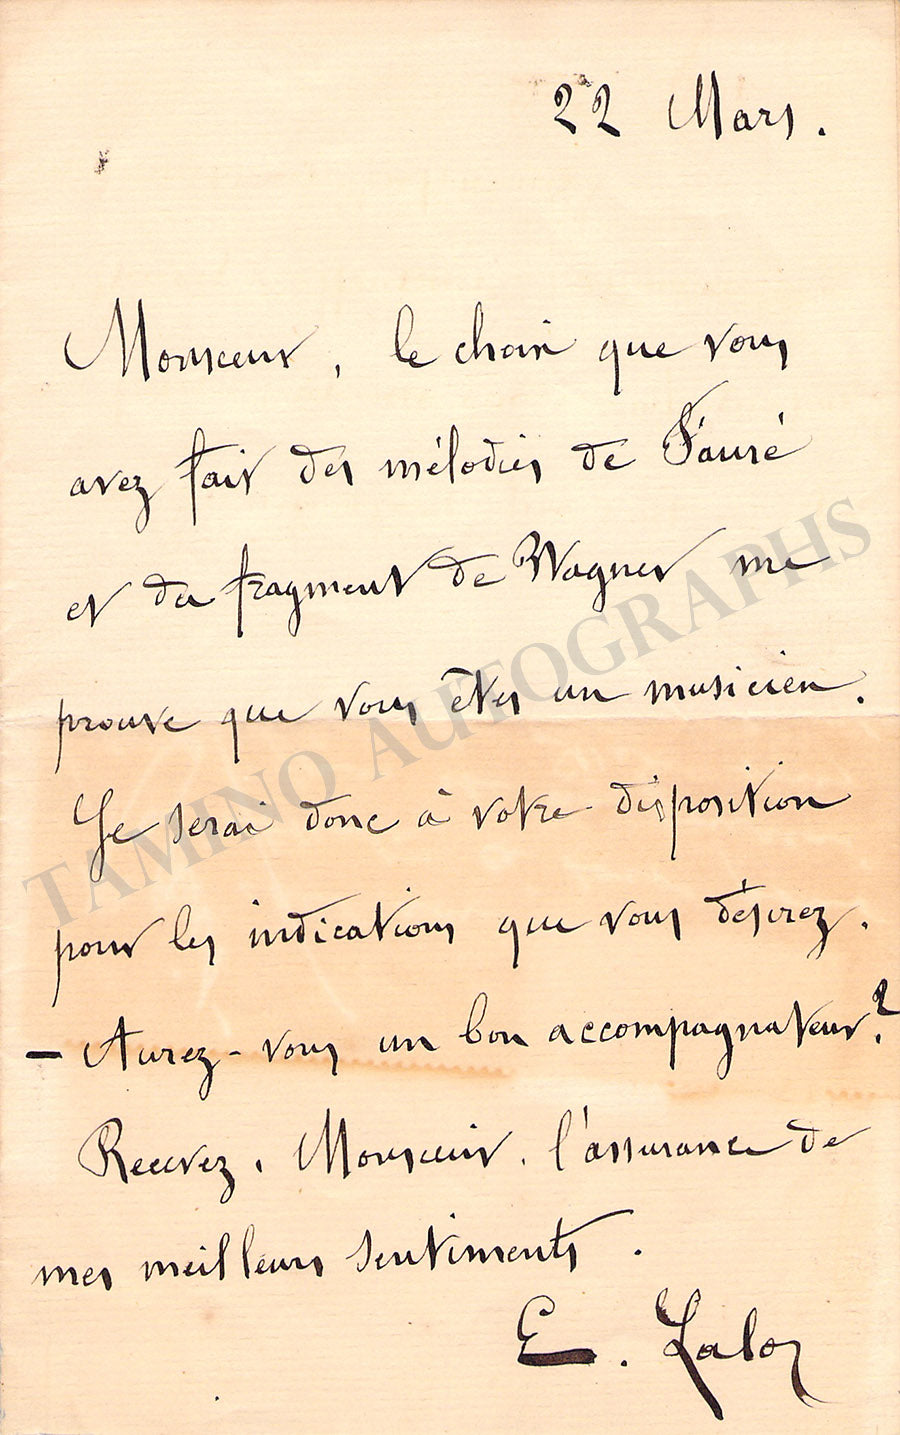 22 Mars.
Monsieur, le choix que vous
avez fait des mélodies de Fauré
et du fragment de Wagner me
prouve que vous êtes un musicien.
Je serai donc à votre disposition
pour les indications que vous désirez.
— Aurez-vous un bon accompagnateur?
Recevez, Monsieur, l'assurance de
mes meilleurs sentiments.
E. Lalo
TAMINO AUTOGRAPHS